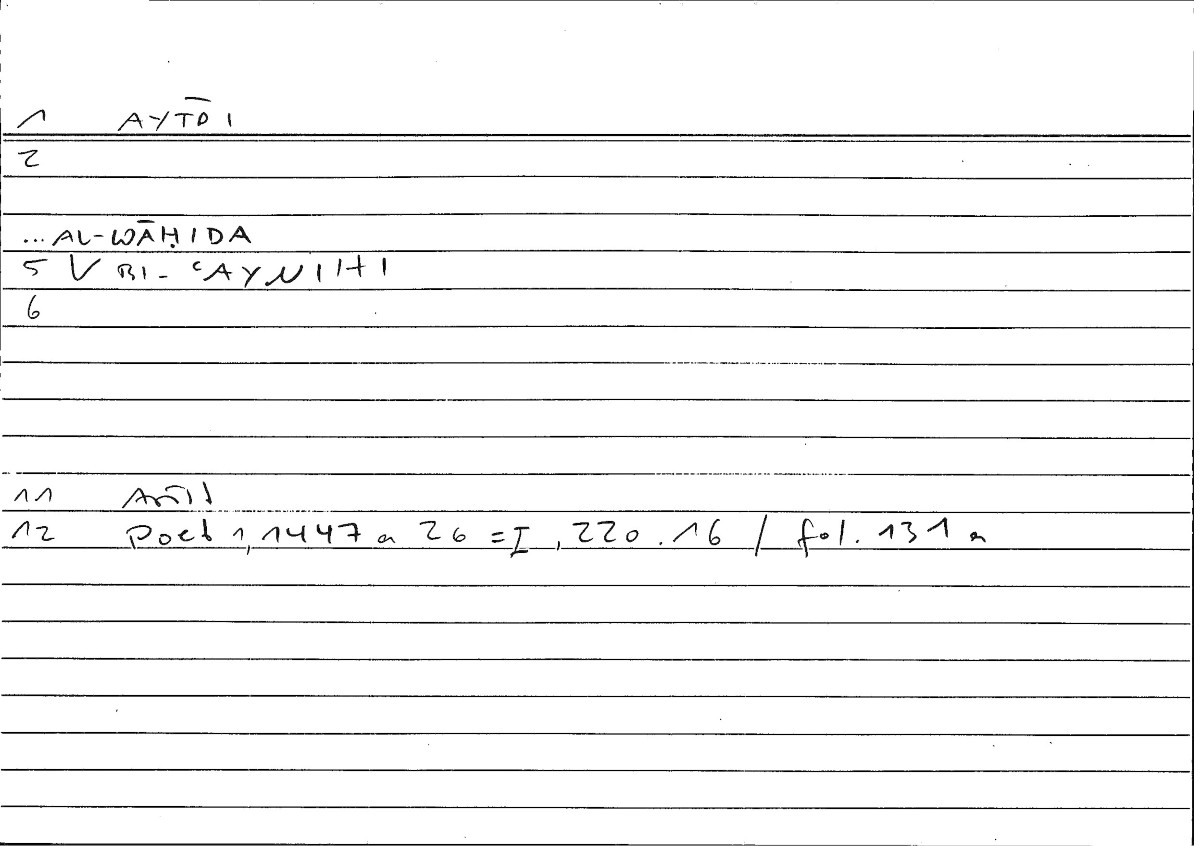 1 AYTŌI
2
... AL-WĀḤIDA
5 V BI-ʿAYNIHI
6
11 Arist
12 Poet 1, 1447 a 26 = I, 220.16 / fol. 131 a